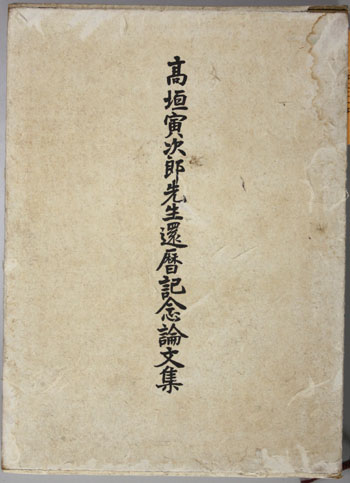 髙垣寅次郎先生還暦記念論文集